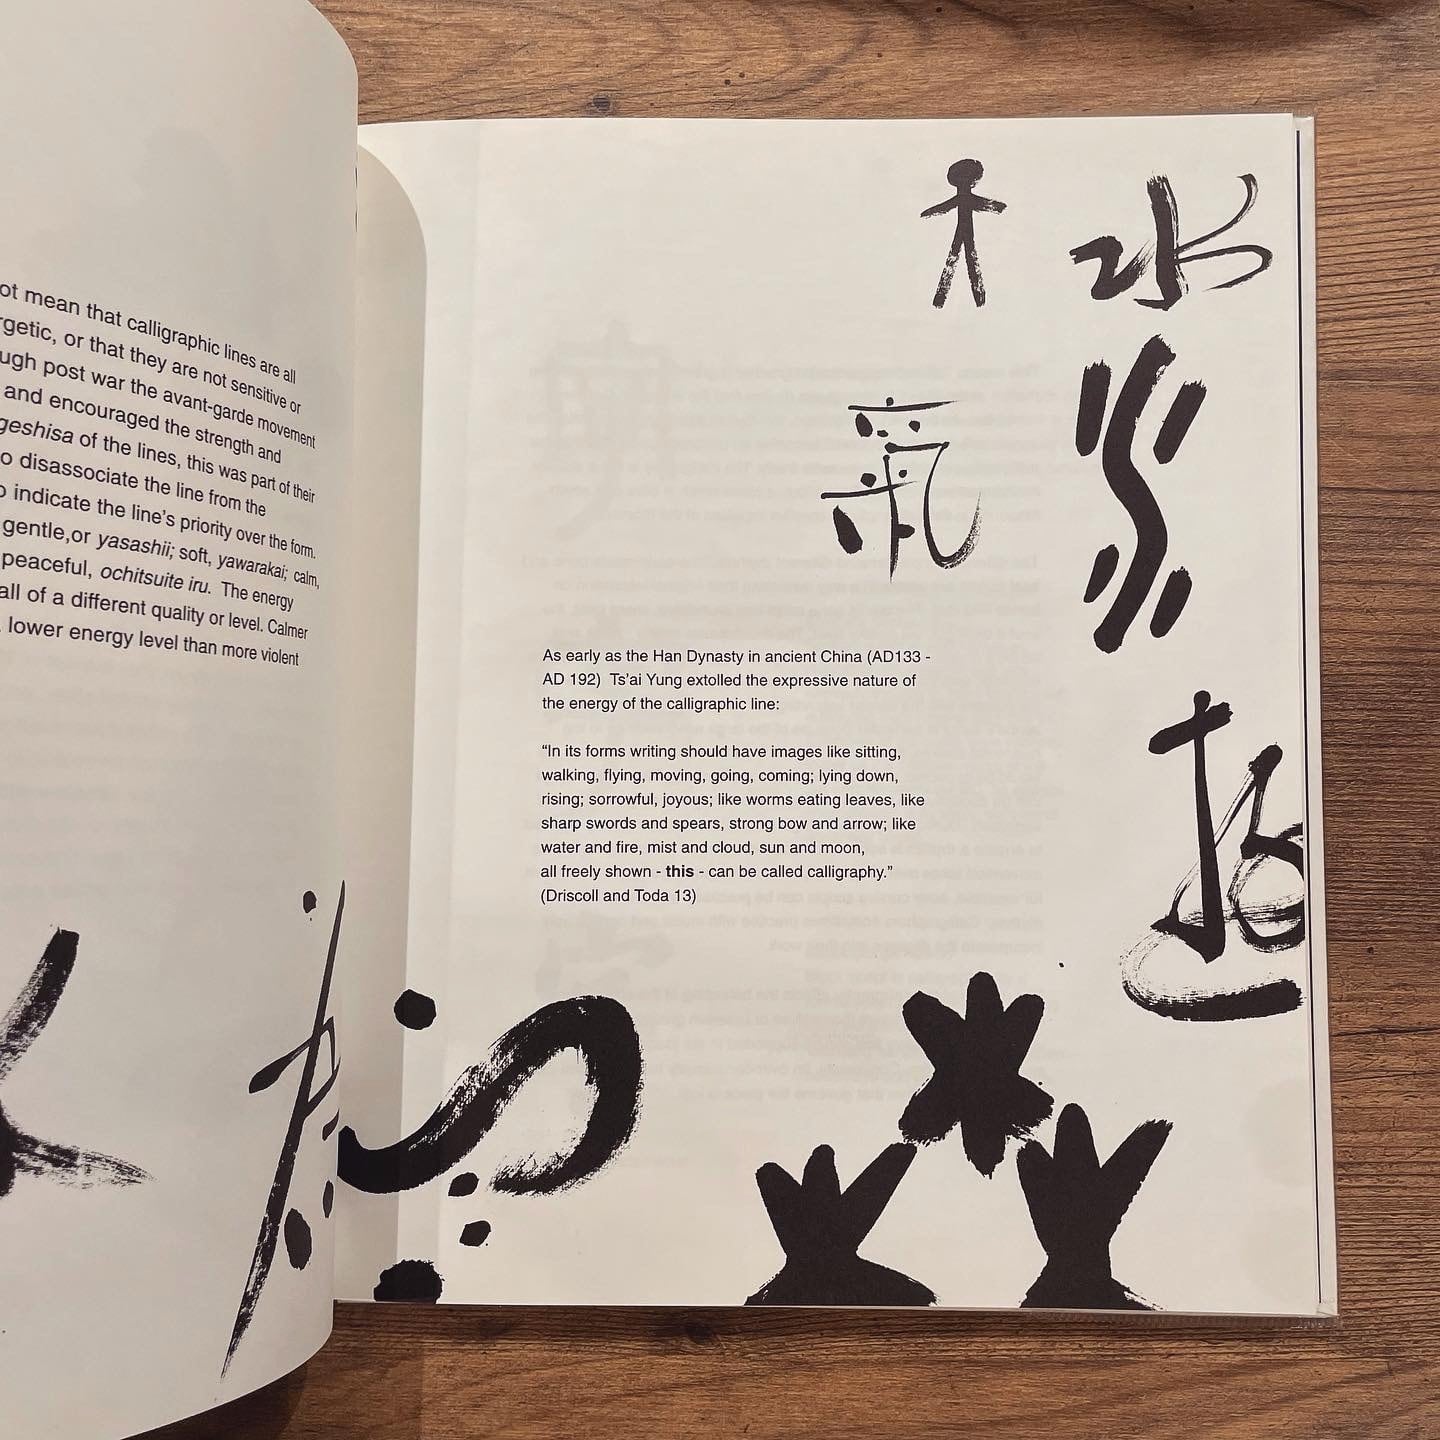 ot mean that calligraphic lines are all
rgetic, or that they are not sensitive or
ugh post war the avant-garde movement
and encouraged the strength and
geshisa of the lines, this was part of their
o disassociate the line from the
o indicate the line's priority over the form.
gentle,or yasashii; soft, yawarakai; calm,
peaceful, ochitsuite iru. The energy
all of a different quality or level. Calmer
lower energy level than more violent
水
氣
As early as the Han Dynasty in ancient China (AD133 -
AD 192) Ts'ai Yung extolled the expressive nature of
the energy of the calligraphic line:
“In its forms writing should have images like sitting,
walking, flying, moving, going, coming; lying down,
rising; sorrowful, joyous; like worms eating leaves, like
sharp swords and spears, strong bow and arrow; like
water and fire, mist and cloud, sun and moon,
all freely shown - this - can be called calligraphy.”
(Driscoll and Toda 13)